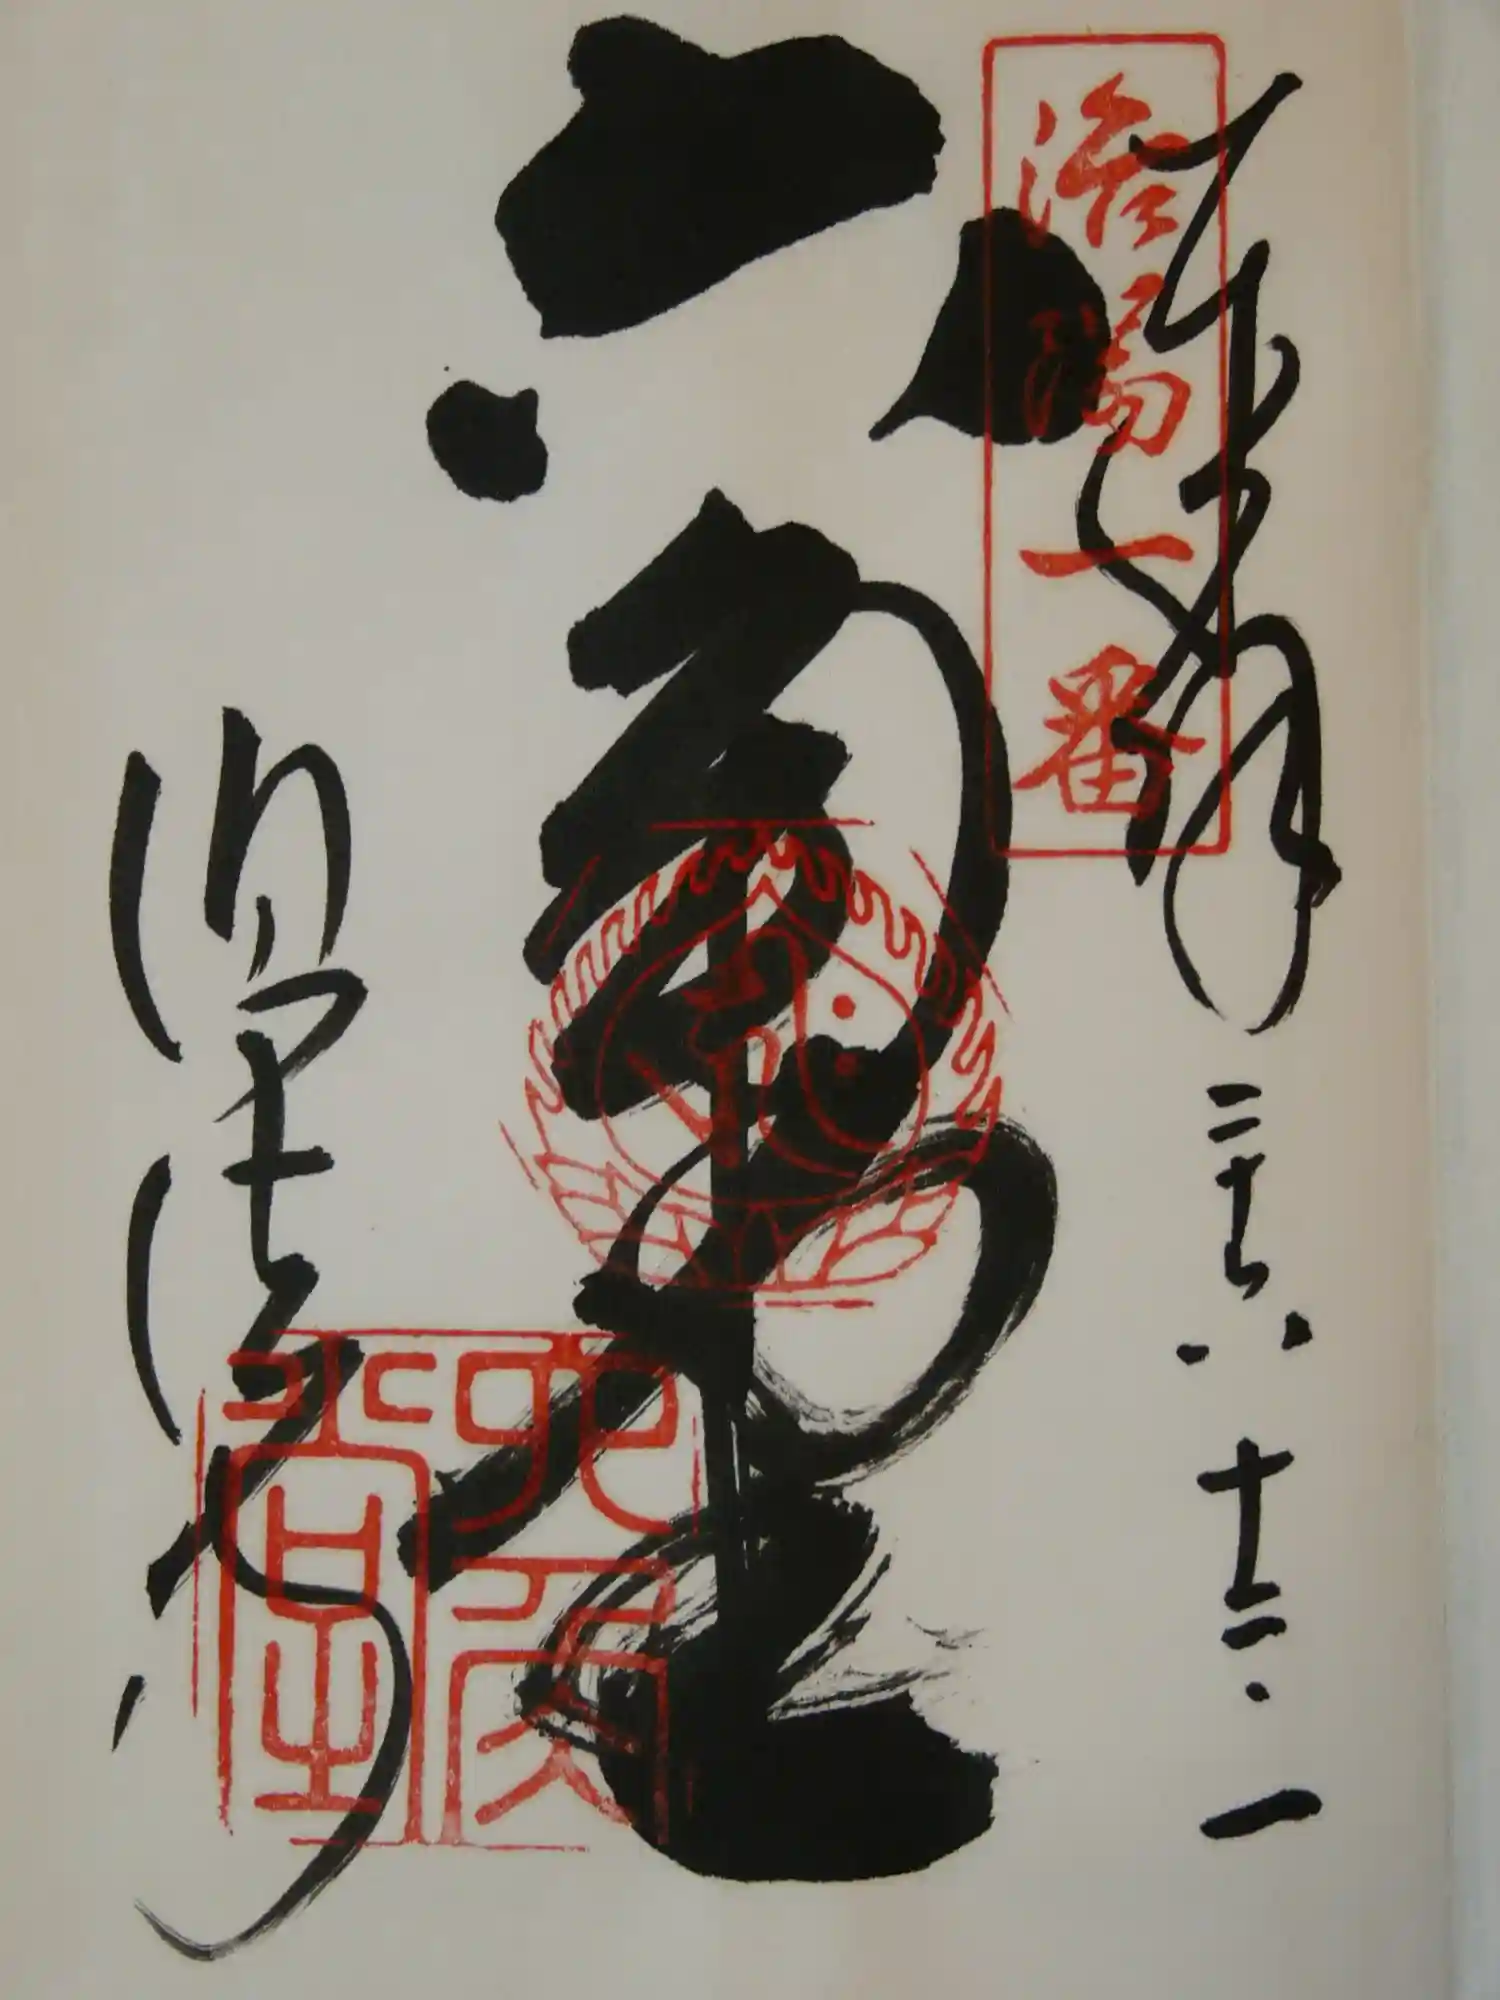 奉拝 二十六 十二・一
洛陽一番
六角堂
頂法寺
六角堂